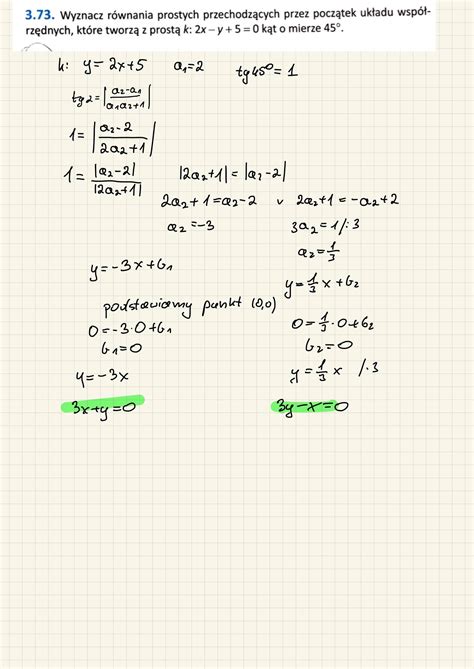 3.73. Wyznacz równania prostych przechodzących przez początek układu współ-
rzędnych, które tworzą z prostą k: 2x – y + 5 = 0 kąt o mierze 45°.
k: y = 2x+5 a₁=2 tg45° = 1
tg2 = |a₂-a₁/a₁a₂+1|
1 = |a₂-2/2a₂+1|
1 = |a₂-2|/|2a₂+1| |2a₂+1| = |a₂-2|
2a₂+1=a₂-2 v 2a₂+1=-a₂+2
a₂=-3 3a₂=1/:3
a₂=1/3
y=-3x+b₁ y=1/3x+b₂
podstawiamy punkt (0,0)
0=-3·0+b₁ 0=1/3·0+b₂
b₁=0 b₂=0
y=-3x y=1/3x /·3
3x+y=0 3y-x=0